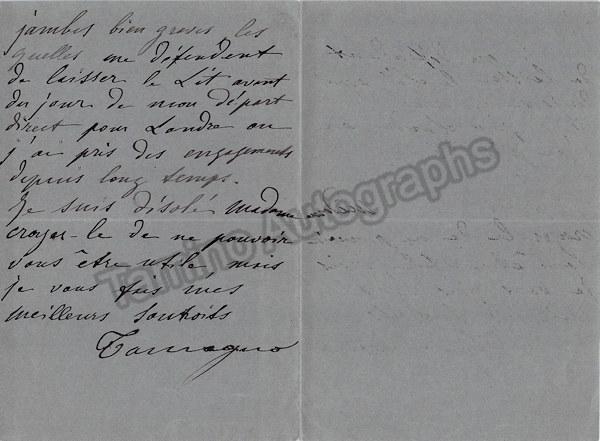 jambes bien groses les
quelles me défendent
de laisser le Lit avant
du jour de mon départ
direct pour Londre ou
j'ai pris des engagements
depuis long temps.
Je suis désolé Madame
croyez-le de ne pouvoir
vous être utile mais
je vous fais mes
meilleurs souhaits
Tamagno
Tamino Autographs